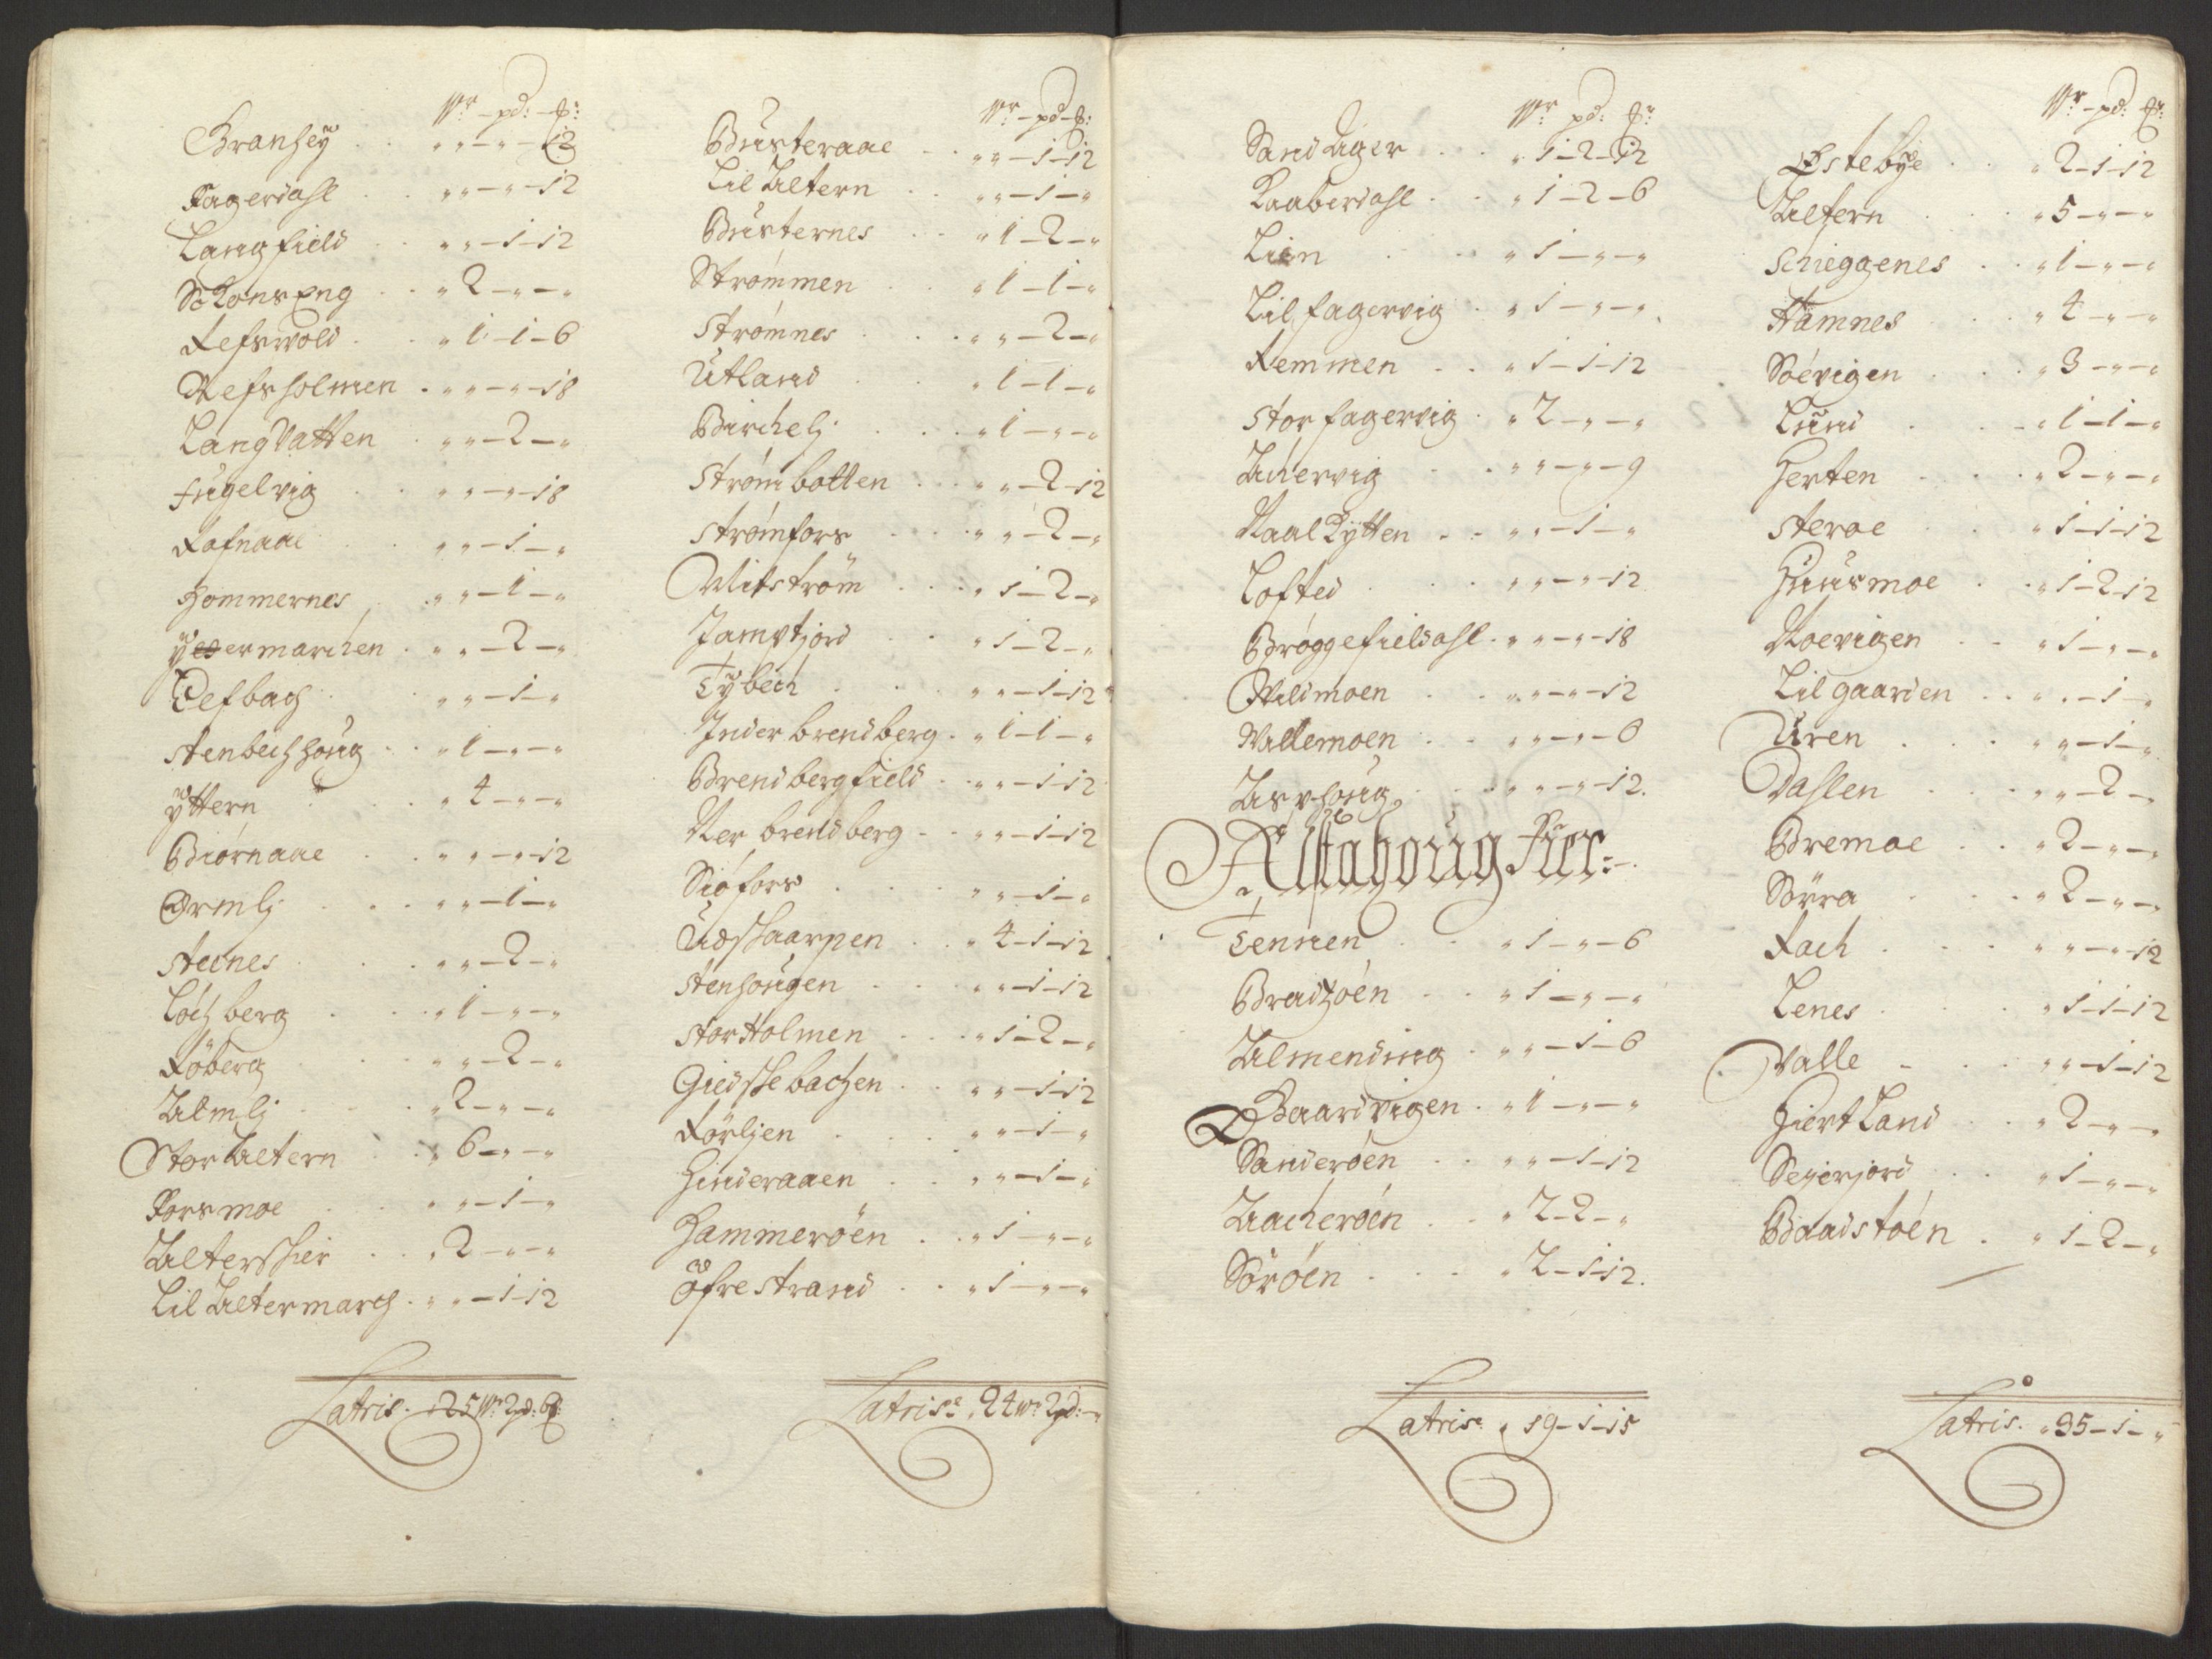 Wr - pd: - ℔:
Granhey . . " " - " - 12
Fagerdahl . . " " - " - 12
Langfield . . " " - 1 - 12
Skonseng . . " 2 - " - "
Refswold . . " 1 - 1 - 6
Refsholmen . " " - " - 18
Langvatten . " " - 2 - "
Fugelvig . . " " - " - 18
Rafnaae . . " " - 1 - "
Hommernes . " " - 1 - "
Ydermarchen . " " - 2 - "
Defbach . " " - 1 - "
Stenbechhoug . . " 1 - " - "
Yttern . . " 4 - " - "
Biørnaae . . " " - " - 12
Ormlj . . . " " - 1 - "
Steines . . " " - 2 - "
Løchberg . . " 1 - " - "
Røberg . . " " - 2 - "
Almlj . . . " 2 - " - "
Stor Altern . . " 6 - " - "
Forsmoe . . " " - 1 - "
Alterschier . . " 2 - " - "
Lil Altermarch . " " - 1 - 12
Latris. " 25 Wr 2 pd: 6 ℔:
Wr - pd - ℔:
Busteraae . . " " - 1 - 12
Lil Altern . . " " - 1 - "
Busternes . . " 1 - 2 - "
Strømmen . . " 1 - 1 - "
Strømnes . . . " " - 2 - "
Utland . . " 1 - 1 - "
Birchelj . . . " 1 - " - "
Strømbotten . . " " - 2 - 12
Strømfors . . . " " - 2 - "
Mitstrøm . . . " 1 - 2 - "
Jamptjord . . " 1 - 2 - "
Tybech . . . " " - 1 - 12
Inder brendberg . " 1 - 1 - "
Brendbergfield . . " " - 1 - 12
Ner brendberg . . " " - 1 - 12
Siøfors . . . " " - 1 - "
Udskaarpen . . " 4 - 1 - 12
Stenhougen . . . " " - 1 - 12
Stor Holmen . . . " 1 - 2 - "
Giedskebachen . . " " - 1 - 12
Rørljen . . . " " - 1 - "
Hinderaaen . . " " - 1 - "
Hammerøen . . . " 1 - " - "
Øfrestrand . . " 1 - " - "
Latris: " 24 Wr 2 pd: - "
Wr pd: ℔:
Sandager . . " 1 - 2 - 12
Raaberdahl . . " 1 - 2 - 6
Lien . . . " 1 - " - "
Lil fagervig . " 1 - " - "
Remmen . . " 1 - 1 - 12
Stor fagervig . " 2 - " - "
Achervig . . " " - " - 9
Naalkytten . . " " - 1 - "
Lofted . . . " " - " - 12
Brøggefieldahl . " " - " - 18
Wildmoen . . " " - " - 12
Wallemoen . . " " - " - 6
Asphoug . . . " " - " - 12.
Alstahoug Fier:
Tennen . . " 1 - " - 6
Bradzøen . . " 1 - " - "
Almending . " " - 1 - 6
Baardvigen . " 1 - " - "
Sanderøen . . " " - 1 - 12
Aacherøen . . " 2 - 2 - "
Sørøen . . . " 2 - 1 - 12.
Latris: " 19 - 1 - 15
Wr - pd: ℔:
Østebye . . " 2 - 1 - 12
Alfern . . . " 5 - " - "
Schieggenes . . " 1 - " - "
Hamnes . . " 4 - " - "
Søevigen . . . " 3 - " - "
Lund . . . " 1 - 1 - "
Herten . . . " 2 - " - "
Steroe . . " 1 - 1 - 12
Huusmoe . . " 1 - 2 - 12
Noevigen . . " 1 - " - "
Lil gaarden . . " " - 1 - "
Uren . . . " " - 1 - "
Dahlen . . . " " - 2 - "
Bremoe . . " 2 - " - "
Sørra . . . " 2 - " - "
Rach . . . " " - " - 12
Lenes . . . " 1 - 1 - 12
Valle . . . " " - 1 - 12
Hiertland . . " 2 - " - "
Seierjord . . " 1 - " - "
Baadstøen . . " 1 - 2 - "
Latris. " 35 - 1 - "